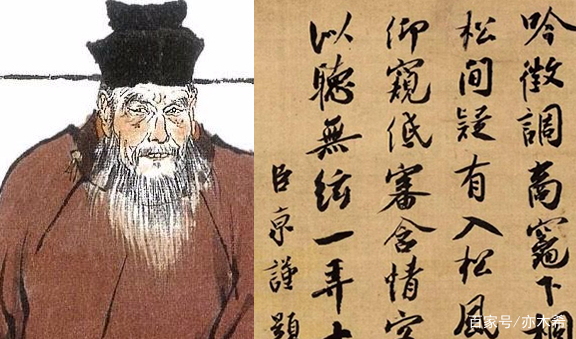 吟徵調商竈下桐
松間疑有入松風
仰窺低審含情客
以聽無絃一弄
臣京謹題
百家号/亦木希